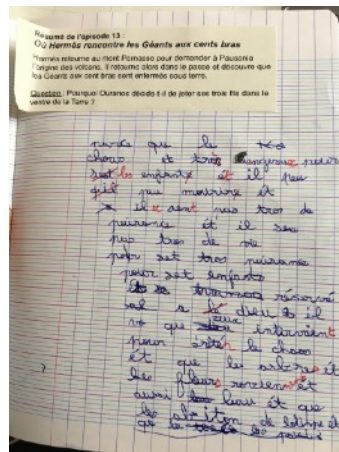 Résumé de l'épisode 13 :
Où Hermès rencontre les Géants aux cents bras
Hermès retourne au mont Parnasse pour demander à Pausania
l'origine des volcans. Il retourne alors dans le passé et découvre que
les Géants aux cent bras sont enfermés sous terre.
Question : Pourquoi Ouranos décide t-il de jeter ses trois fils dans le
ventre de la Terre ?
parce que le
chaos et tros dangereux pour
set les enfants et il peu
qu'il peu mourire et
ils aent pas tros de
puisance et il sue
pas tros de vie
pour set tros puisance
pour set enfants
réservé
sal a le dieu et il
que ceux intervient
pour arèter le chaos
et que les arbres et
les fleurs revienet
aussi leau et que
les abiton de lolinpe et
que les